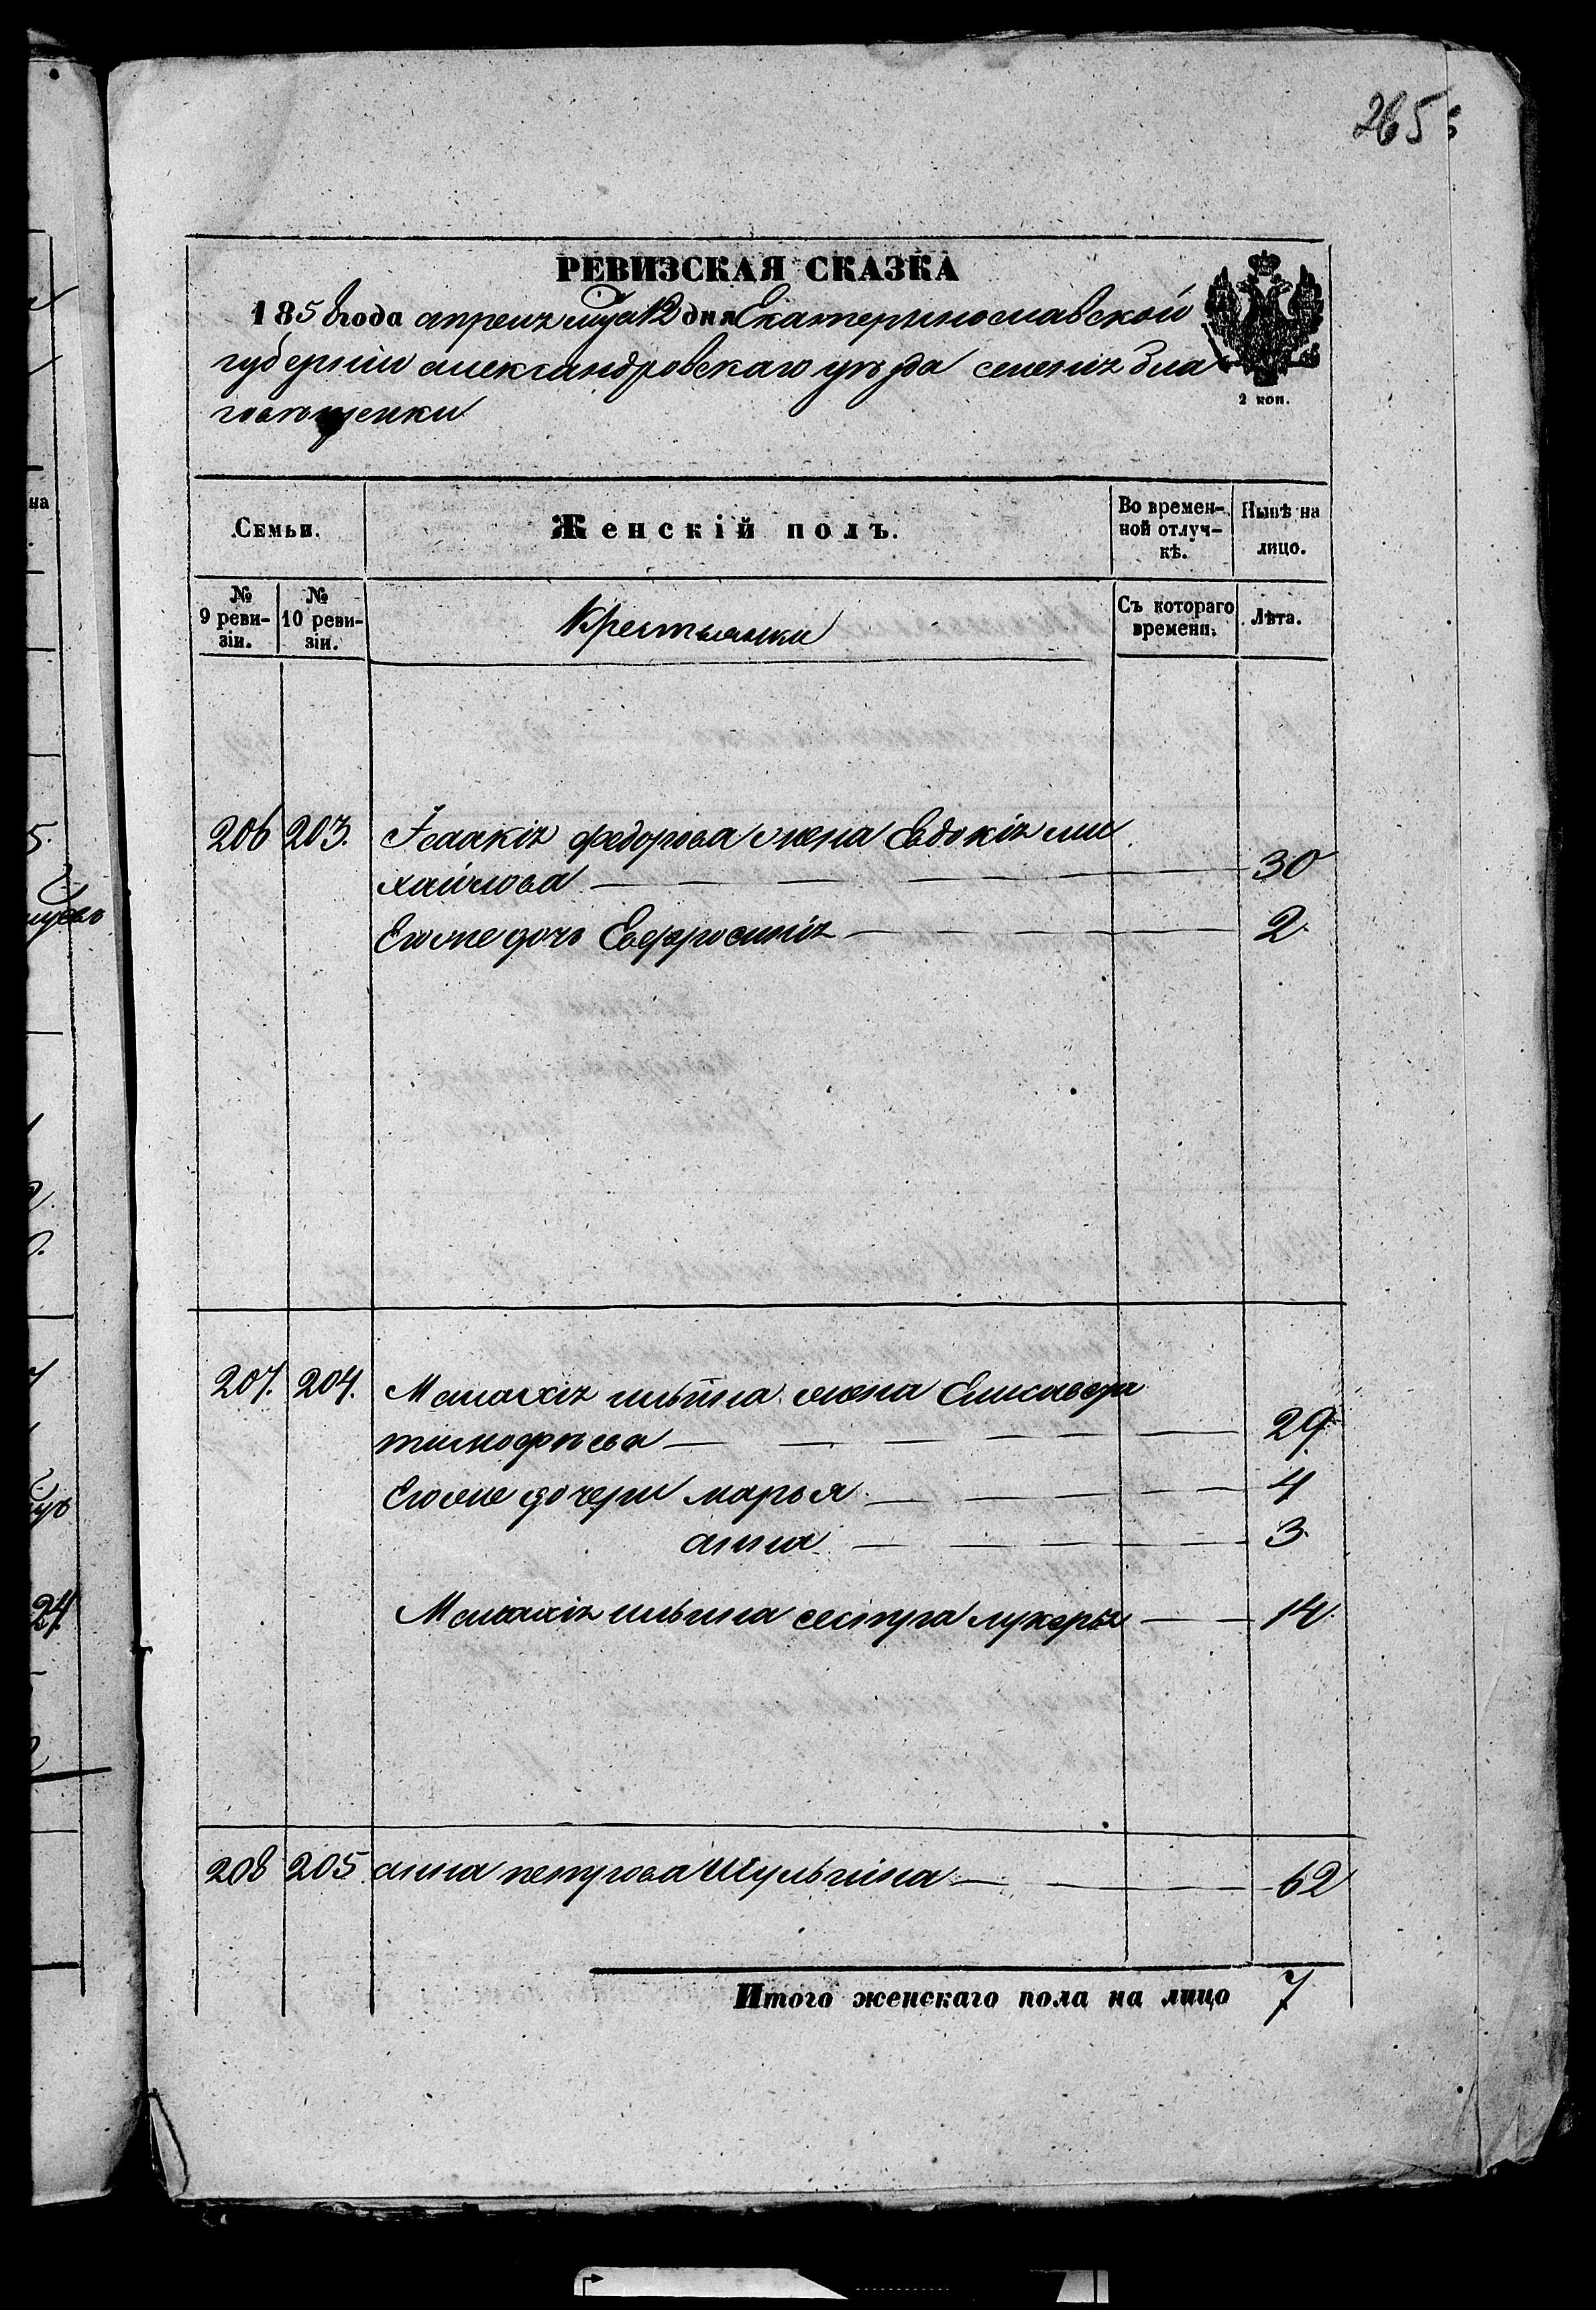 265
РЕВИЗСКАЯ СКАЗКА
1858 года апреля мца 12 дня Екатеринославской
губернии александровскаго уѣзда селенія Бла
говѣщенки
2 коп.
Семьи.
Женскій полъ.
Во времен-
ной отлуч-
кѣ.
Нынѣ на
лицо.
№
9 реви-
зіи.
№
10 реви-
зіи.
Крестьянки
Съ котораго
времени.
Лѣта.
206 203. Исаакія федорова жена Евдокія ми
хайлова 30
Его же дочь Евфросинія 2
207. 204. Малахія ильина жена Елисавета
тимофѣева 29
Его же дочери марья 4
анна 3
Малахія ильина сестра лукерья 14
208 205 анна петрова Шульгина 62
Итого женскаго пола на лицо 7